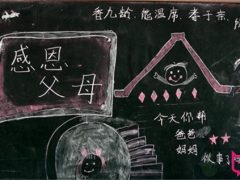 香九龄.能温席.孝于亲,
感恩
父母
今天你帮
爸爸
妈妈
做事了